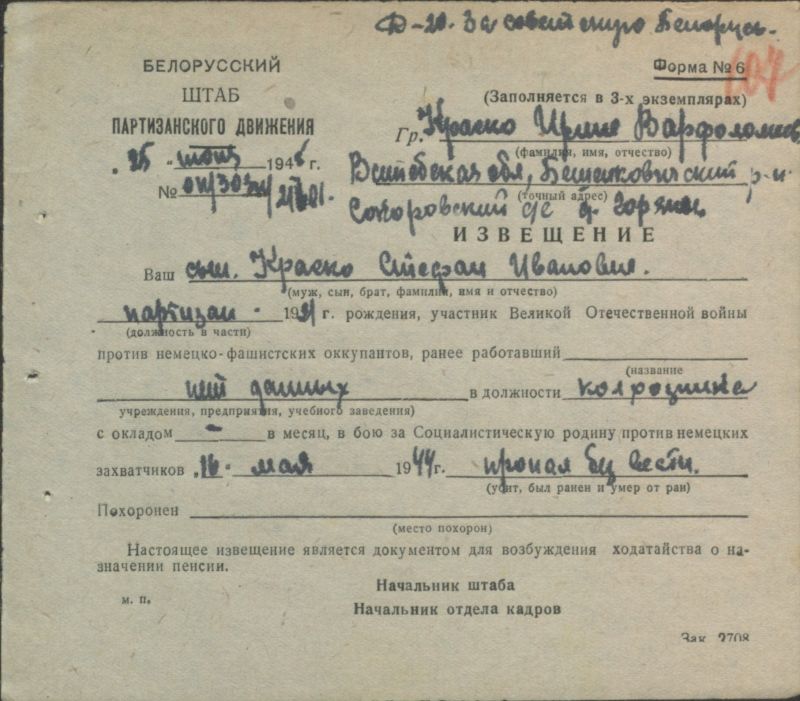 Д-20. За советскую Белорусь.
БЕЛОРУССКИЙ
ШТАБ
ПАРТИЗАНСКОГО ДВИЖЕНИЯ
„25 " 194 г.
№
Форма № 6
107
(Заполняется в 3-х экземплярах)
Гр. Краско Ирине Варфоломеев
(фамилия, имя, отчество)
Витебская обл, Бешенковичский р-н
(точный адрес)
с/с д. Горяне
ИЗВЕЩЕНИЕ
Ваш сын. Краско Стефан Иванович.
(муж, сын, брат, фамилия, имя и отчество)
партизан - 19 г. рождения, участник Великой Отечественной войны
(должность в части)
против немецко-фашистских оккупантов, ранее работавший
(название
нет данных в должности колхозника
учреждения, предприятия, учебного заведения)
с окладом - в месяц, в бою за Социалистическую родину против немецких
захватчиков „16 - мая 1944 г. пропал без вести.
(убит, был ранен и умер от ран)
Похоронен
(место похорон)
Настоящее извещение является документом для возбуждения ходатайства о на-
значении пенсии.
Начальник штаба
м. п.
Начальник отдела кадров
Зак. 2708